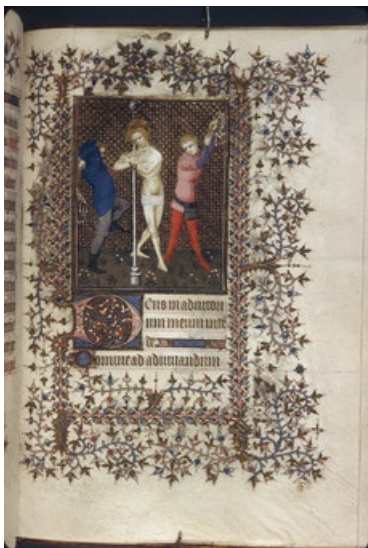 Deus in adiutori
um meum inte
de
Domine ad adiuuandum